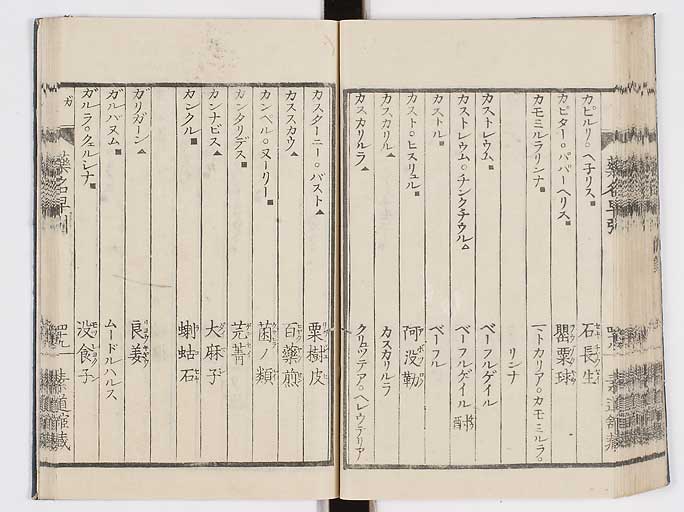 カピルリ。ヘ子リス■ 石長生
カピター。パパーヘリス■ 罌粟球
カモミルラリンナ■ 一トカリア。カモミルラ。
リンナ
カストレウム■ ベーフルゲイル
カストレウム。チンクチウル△ ベーフルゲイル
カストル■ ベーフル
カスト。ヒスリュル■ 阿没勒
カスカリル▲ カスカリルラ
カスカリルラ▲ クリュツテア。ヘレウテリア
カスターニー。バスト▲ 栗樹皮
カススカウ▲ 百藥煎
カンベル。ヌーリー■ 菌ノ類
カンタリデス■ 芫菁
カンナビス▲ 大麻子
カンクル■ 蝲蛄石
ガ
ガリガーン▲ 良姜
ガルバヌム■ ムードルハルス
ガルラ。クェルシナ■ 没食子
藥名早引